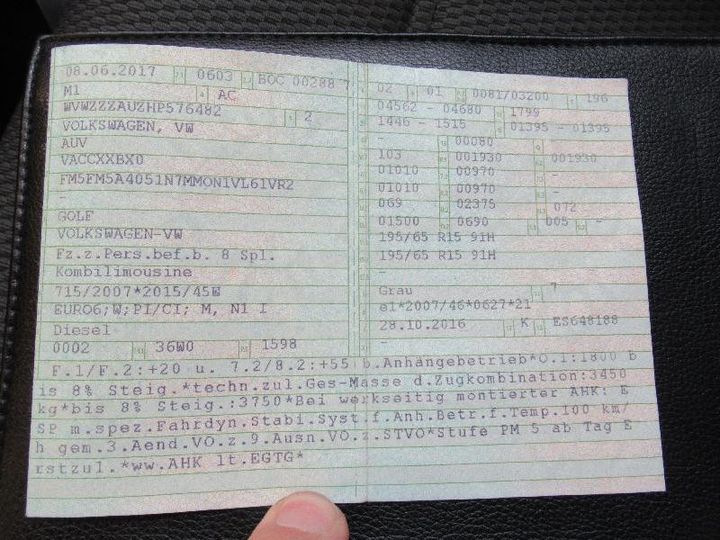 08.06.2017 0603 BOC 00288 7
M1 AC
WVWZZZAUZHP576482 2
VOLKSWAGEN, VW
AUV
VACCXXBX0
FM5FM5A4051N7MMON1VL61VR2
-
GOLF
VOLKSWAGEN-VW
Fz.z.Pers.bef.b. 8 Spl.
Kombilimousine
715/2007*2015/45W
EURO6;W;PI/CI; M, N1 I
Diesel
0002 36W0 1598
02 01 0081/03200 196
04562 - 04680 1799
1446 - 1515 01395 - 01395
- 00080
103 001930 001930
01010 00970 -
01010 00970 -
069 02375 072
01500 0690 005 -
195/65 R15 91H
195/65 R15 91H
-
Grau 7
e1*2007/46*0627*21
28.10.2016 K ES648188
-
F.1/F.2:+20 u. 7.2/8.2:+55 b.Anhängebetrieb*O.1:1800 b
is 8% Steig.*techn.zul.Ges-Masse d.Zugkombination:3450
kg*bis 8% Steig.:3750*Bei werkseitig montierter AHK: E
SP m.spez.Fahrdyn.Stabi.Syst.f.Anh.Betr.f.Temp.100 km/
h gem.3.Aend.VO.z.9.Ausn.VO.z.STVO*Stufe PM 5 ab Tag E
rstzul.*ww.AHK lt.EGTG*